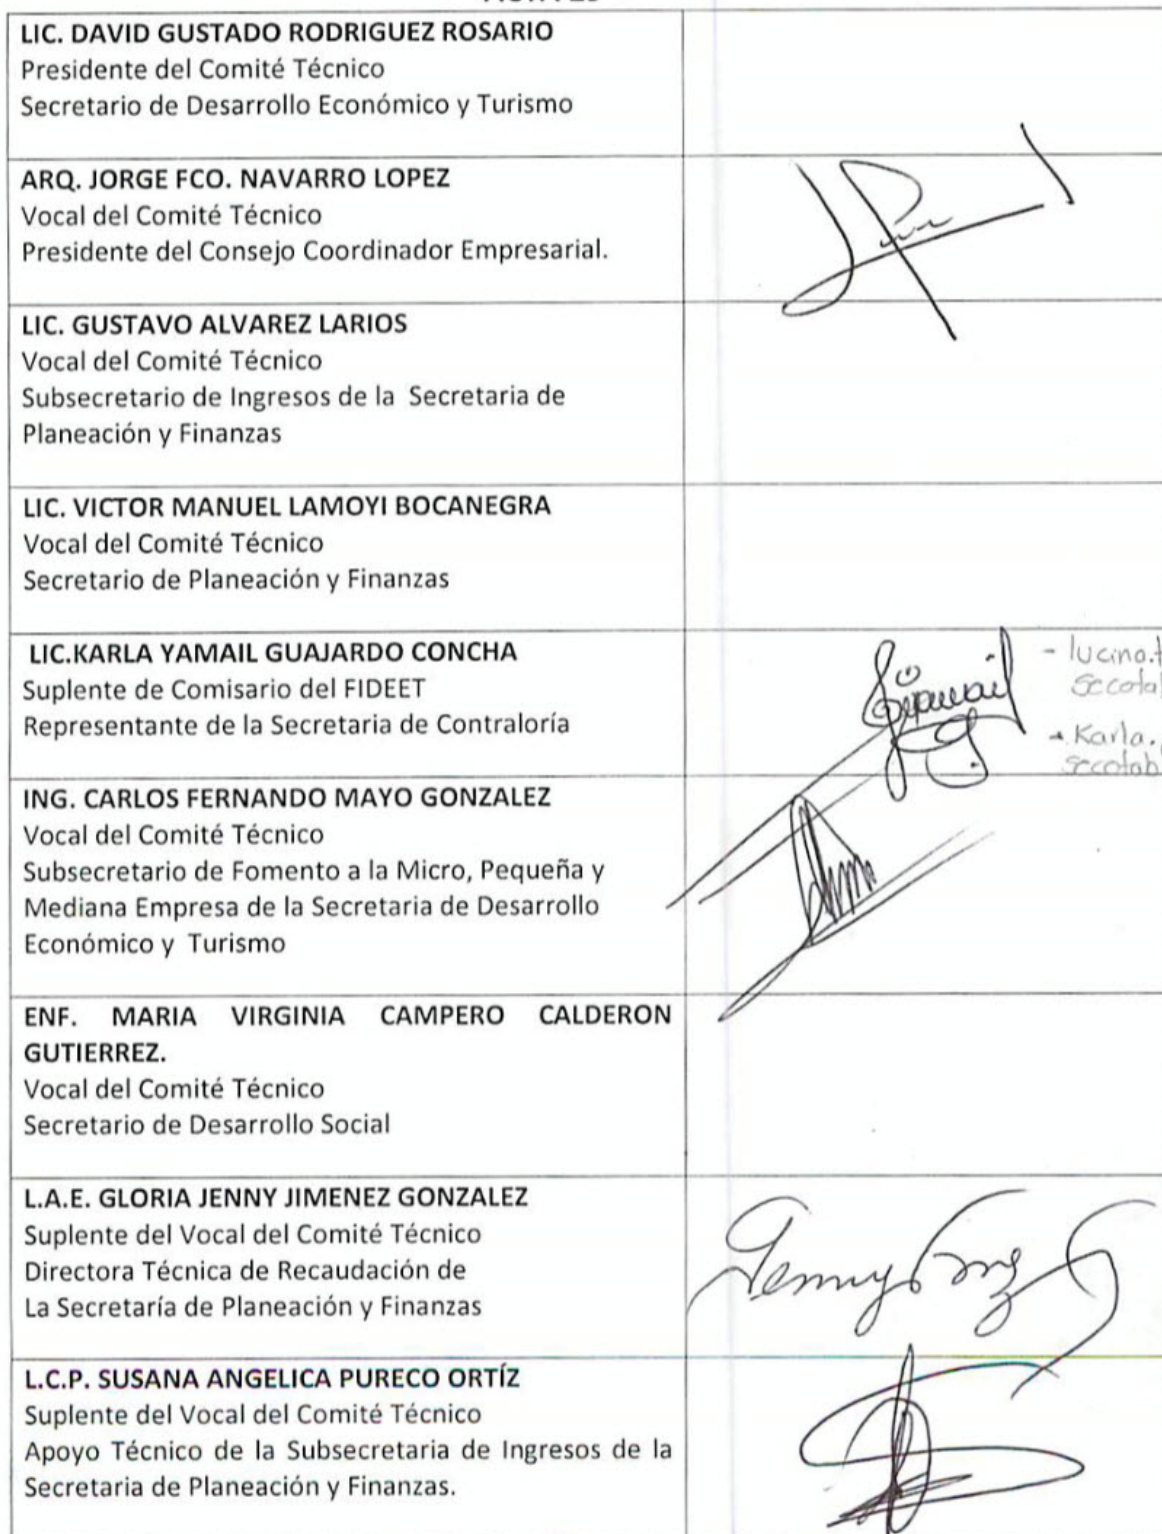 LIC. DAVID GUSTADO RODRIGUEZ ROSARIO
Presidente del Comité Técnico
Secretario de Desarrollo Económico y Turismo
ARQ. JORGE FCO. NAVARRO LOPEZ
Vocal del Comité Técnico
Presidente del Consejo Coordinador Empresarial.
LIC. GUSTAVO ALVAREZ LARIOS
Vocal del Comité Técnico
Subsecretario de Ingresos de la Secretaria de
Planeación y Finanzas
LIC. VICTOR MANUEL LAMOYI BOCANEGRA
Vocal del Comité Técnico
Secretario de Planeación y Finanzas
LIC.KARLA YAMAIL GUAJARDO CONCHA
Suplente de Comisario del FIDEET
Representante de la Secretaria de Contraloría
- lucina.
- Karla.
ING. CARLOS FERNANDO MAYO GONZALEZ
Vocal del Comité Técnico
Subsecretario de Fomento a la Micro, Pequeña y
Mediana Empresa de la Secretaria de Desarrollo
Económico y Turismo
ENF. MARIA VIRGINIA CAMPERO CALDERON
GUTIERREZ.
Vocal del Comité Técnico
Secretario de Desarrollo Social
L.A.E. GLORIA JENNY JIMENEZ GONZALEZ
Suplente del Vocal del Comité Técnico
Directora Técnica de Recaudación de
La Secretaría de Planeación y Finanzas
L.C.P. SUSANA ANGELICA PURECO ORTÍZ
Suplente del Vocal del Comité Técnico
Apoyo Técnico de la Subsecretaria de Ingresos de la
Secretaria de Planeación y Finanzas.